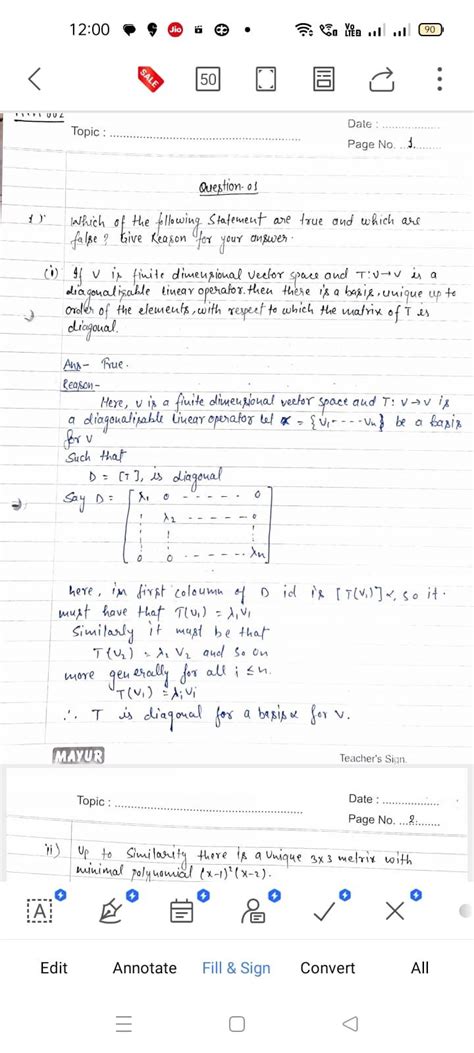 12:00
Jio
Vo
LTE
90
SALE
50
Topic :
Date :
Page No. 1
Question-01
1)
Which of the following Statement are true and which are
false? Give Reason for your answer.
(i) If V is finite dimensional vector space and T:V→V is a
diagonalizable linear operator. then there is a basis, unique up to
order of the elements, with respect to which the matrix of T is
diagonal.
Ans- True.
Reason-
Here, V is a finite dimensional vector space and T: V→V is
a diagonalizable linear operator let α = {V₁ - - - - Vn} be a basis
for V
Such that
D = [T], is diagonal
Say D = [λ₁ 0 - - - - - - 0
λ₂ - - - - - - 0
0 0 - - - - - - λn]
here, in first coloumn of D id is [T(V₁)]α, so it.
must have that T(V₁) = λ₁V₁
Similarly it must be that
T(V₂) = λ₂ V₂ and so on
more generally for all i ≤ n.
T(V₁) = λiVi
∴ T is diagonal for a basis α for V.
MAYUR
Teacher's Sign.
Topic :
Date :
Page No. 2
ii) Up to Similarity there is a unique 3x3 metrix with
minimal polynomial (x-1)²(x-2).
A
Edit
Annotate
Fill & Sign
Convert
All